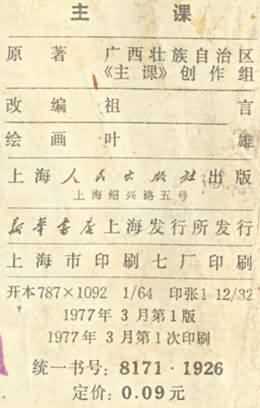 主课
原著 广西壮族自治区
《主课》创作组
改编 祖言
绘画 叶雄
上海人民出版社出版
上海绍兴路五号
新华书店上海发行所发行
上海市印刷七厂印刷
开本787×1092 1/64 印张1 12/32
1977年3月第1版
1977年3月第1次印刷
统一书号：8171·1926
定价：0.09元